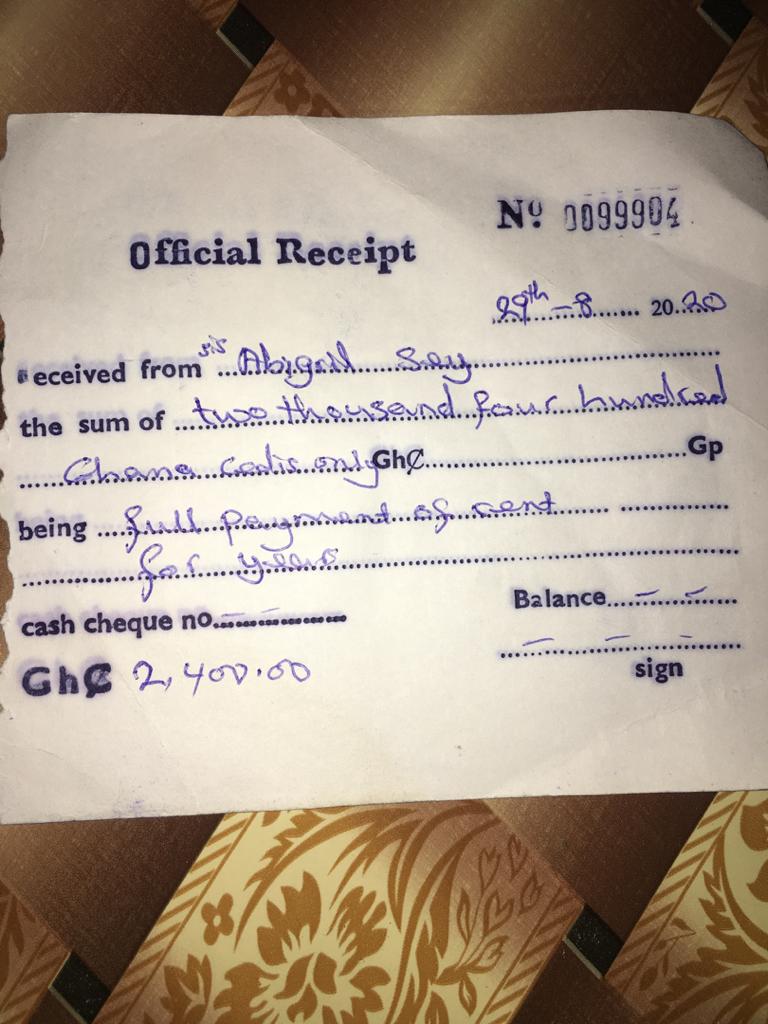 Nº 0099904
Official Receipt
29th - 8 ...... 20..20
eceived from sis ...Abigail Sey..............................
the sum of ...two thousand four hundred
.....Ghana cedis only GhȻ.......................................Gp
being ....full payment of rent...... ................
.................for years.................................................
cash cheque no..– –...............
Balance....– –.....
GhȻ 2,400.00
.....– – –.....
sign